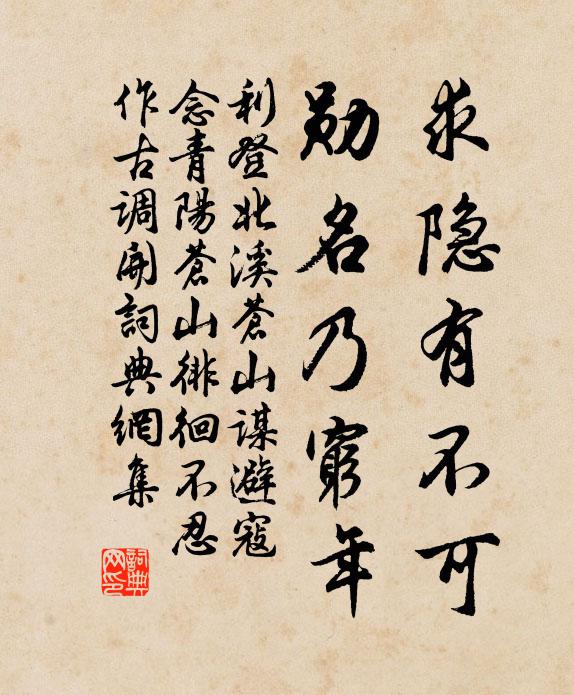 求隐有不可
勋名乃窮年
利登北溪蒼山謀避寇
念青陽蒼山徘徊不忍
作古調開詞典網集
詞典
网印